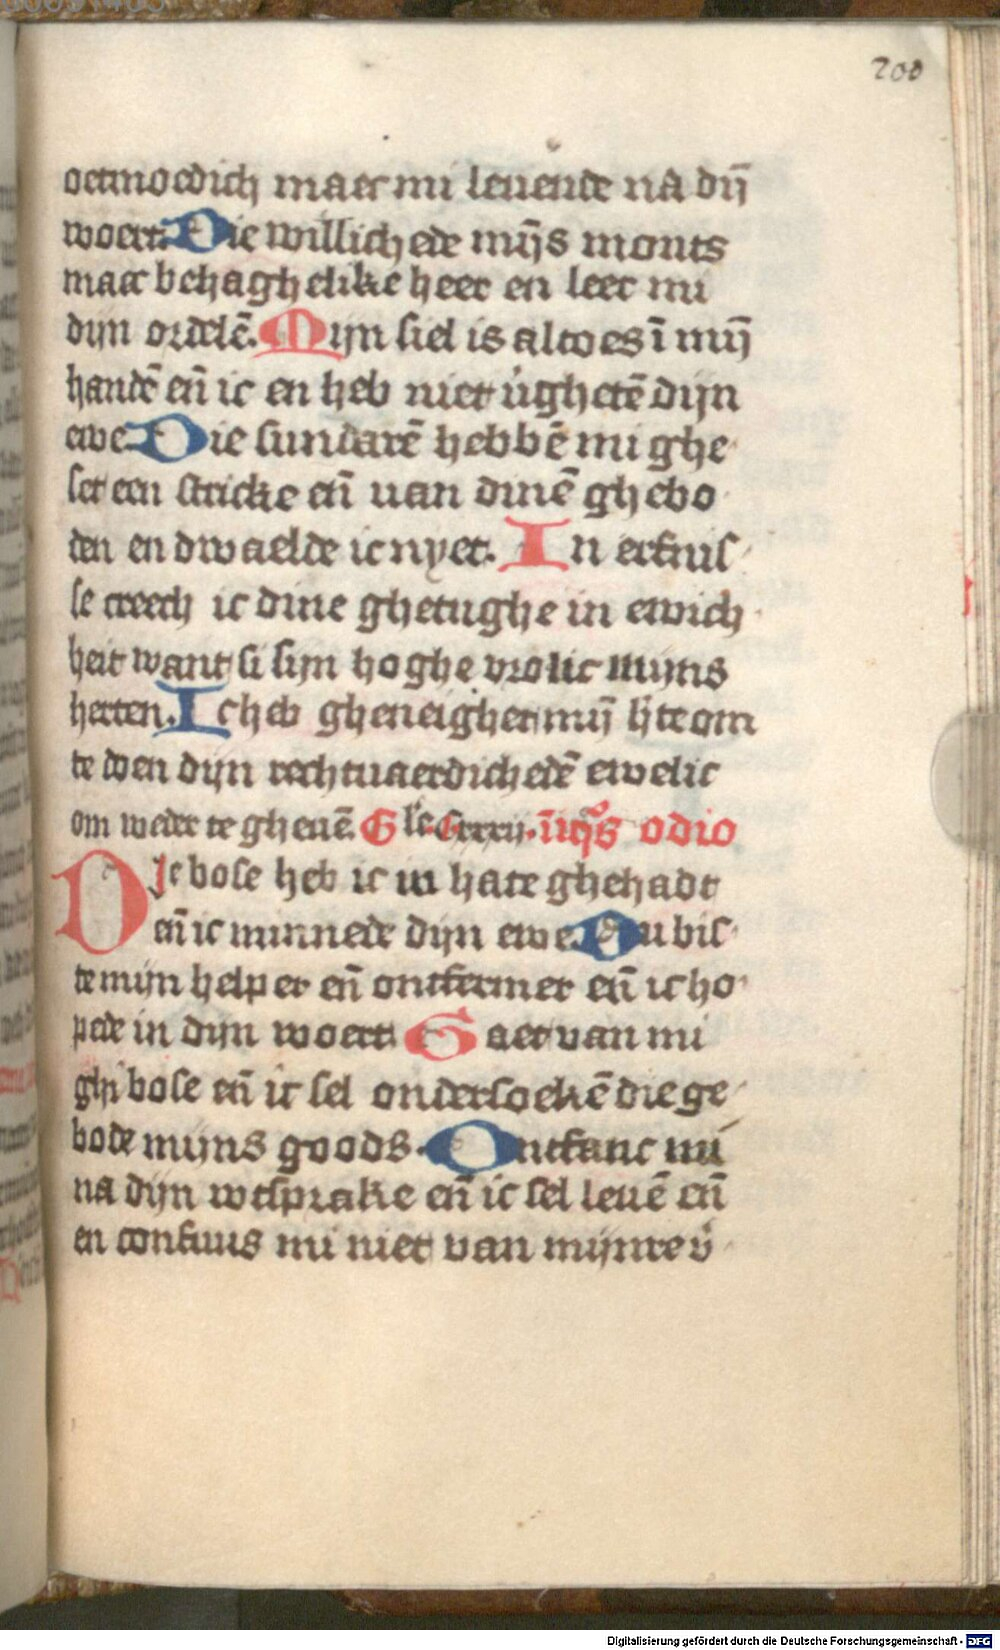 200
oetmoedich maer mi leuende na dij̄
woert. Die willichede mijs monts
maec behaghelike heer en leer mi
dijn ordelē. Mijn siel is altoes ī mij̄
handē eñ ic en heb niet v̓ghetē dijn
ewe. Die sundarē hebbē mi ghe
set een stricke eñ uan dinē ghebo
den en dwaelde ic nyet. In erfnis
se creech ic dine ghetughe in ewich
heit want si sijn hoghe vrolic mijns
herten. Ic heb gheneighet mij̄ h̓te om
te doen dijn rechtuaerdichedē ewelic
om weder te gheuē. Gl'e iīq̄s odio
Die bose heb ic in hate ghehadt
eñ ic minnede dijn ewe. Du bis
te mijn helper eñ ontfermer eñ ic ho
pede in dijn woert. Gaet van mi
ghi bose eñ ic sel ondersoekē die ge
bode mijns goods. Ontfanc mi
na dijn wtsprake eñ ic sel leuē eñ
en confuus mi niet van mijnre v̓
Digitalisierung gefördert durch die Deutsche Forschungsgemeinschaft - DFG